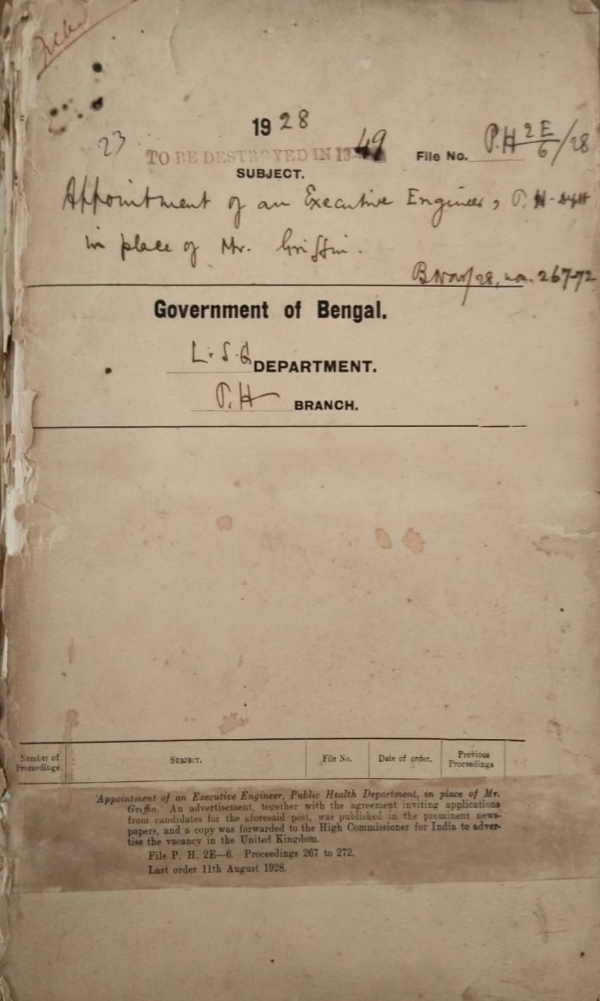 1928
23
TO BE DESTROYED IN 1949
File No. P.H 2E/6/28
SUBJECT.
Appointment of an Executive Engineer, P.H.
in place of Mr. Griffin.
267-72
Government of Bengal.
L.S.G DEPARTMENT.
P.H BRANCH.
Number of Proceedings. SUBJECT. File No. Date of order. Previous Proceedings
Appointment of an Executive Engineer, Public Health Department, in place of Mr.
Griffin. An advertisement, together with the agreement inviting applications
from candidates for the aforesaid post, was published in the prominent news-
papers, and a copy was forwarded to the High Commissioner for India to adver-
tise the vacancy in the United Kingdom.
File P. H. 2E—6. Proceedings 267 to 272.
Last order 11th August 1928.